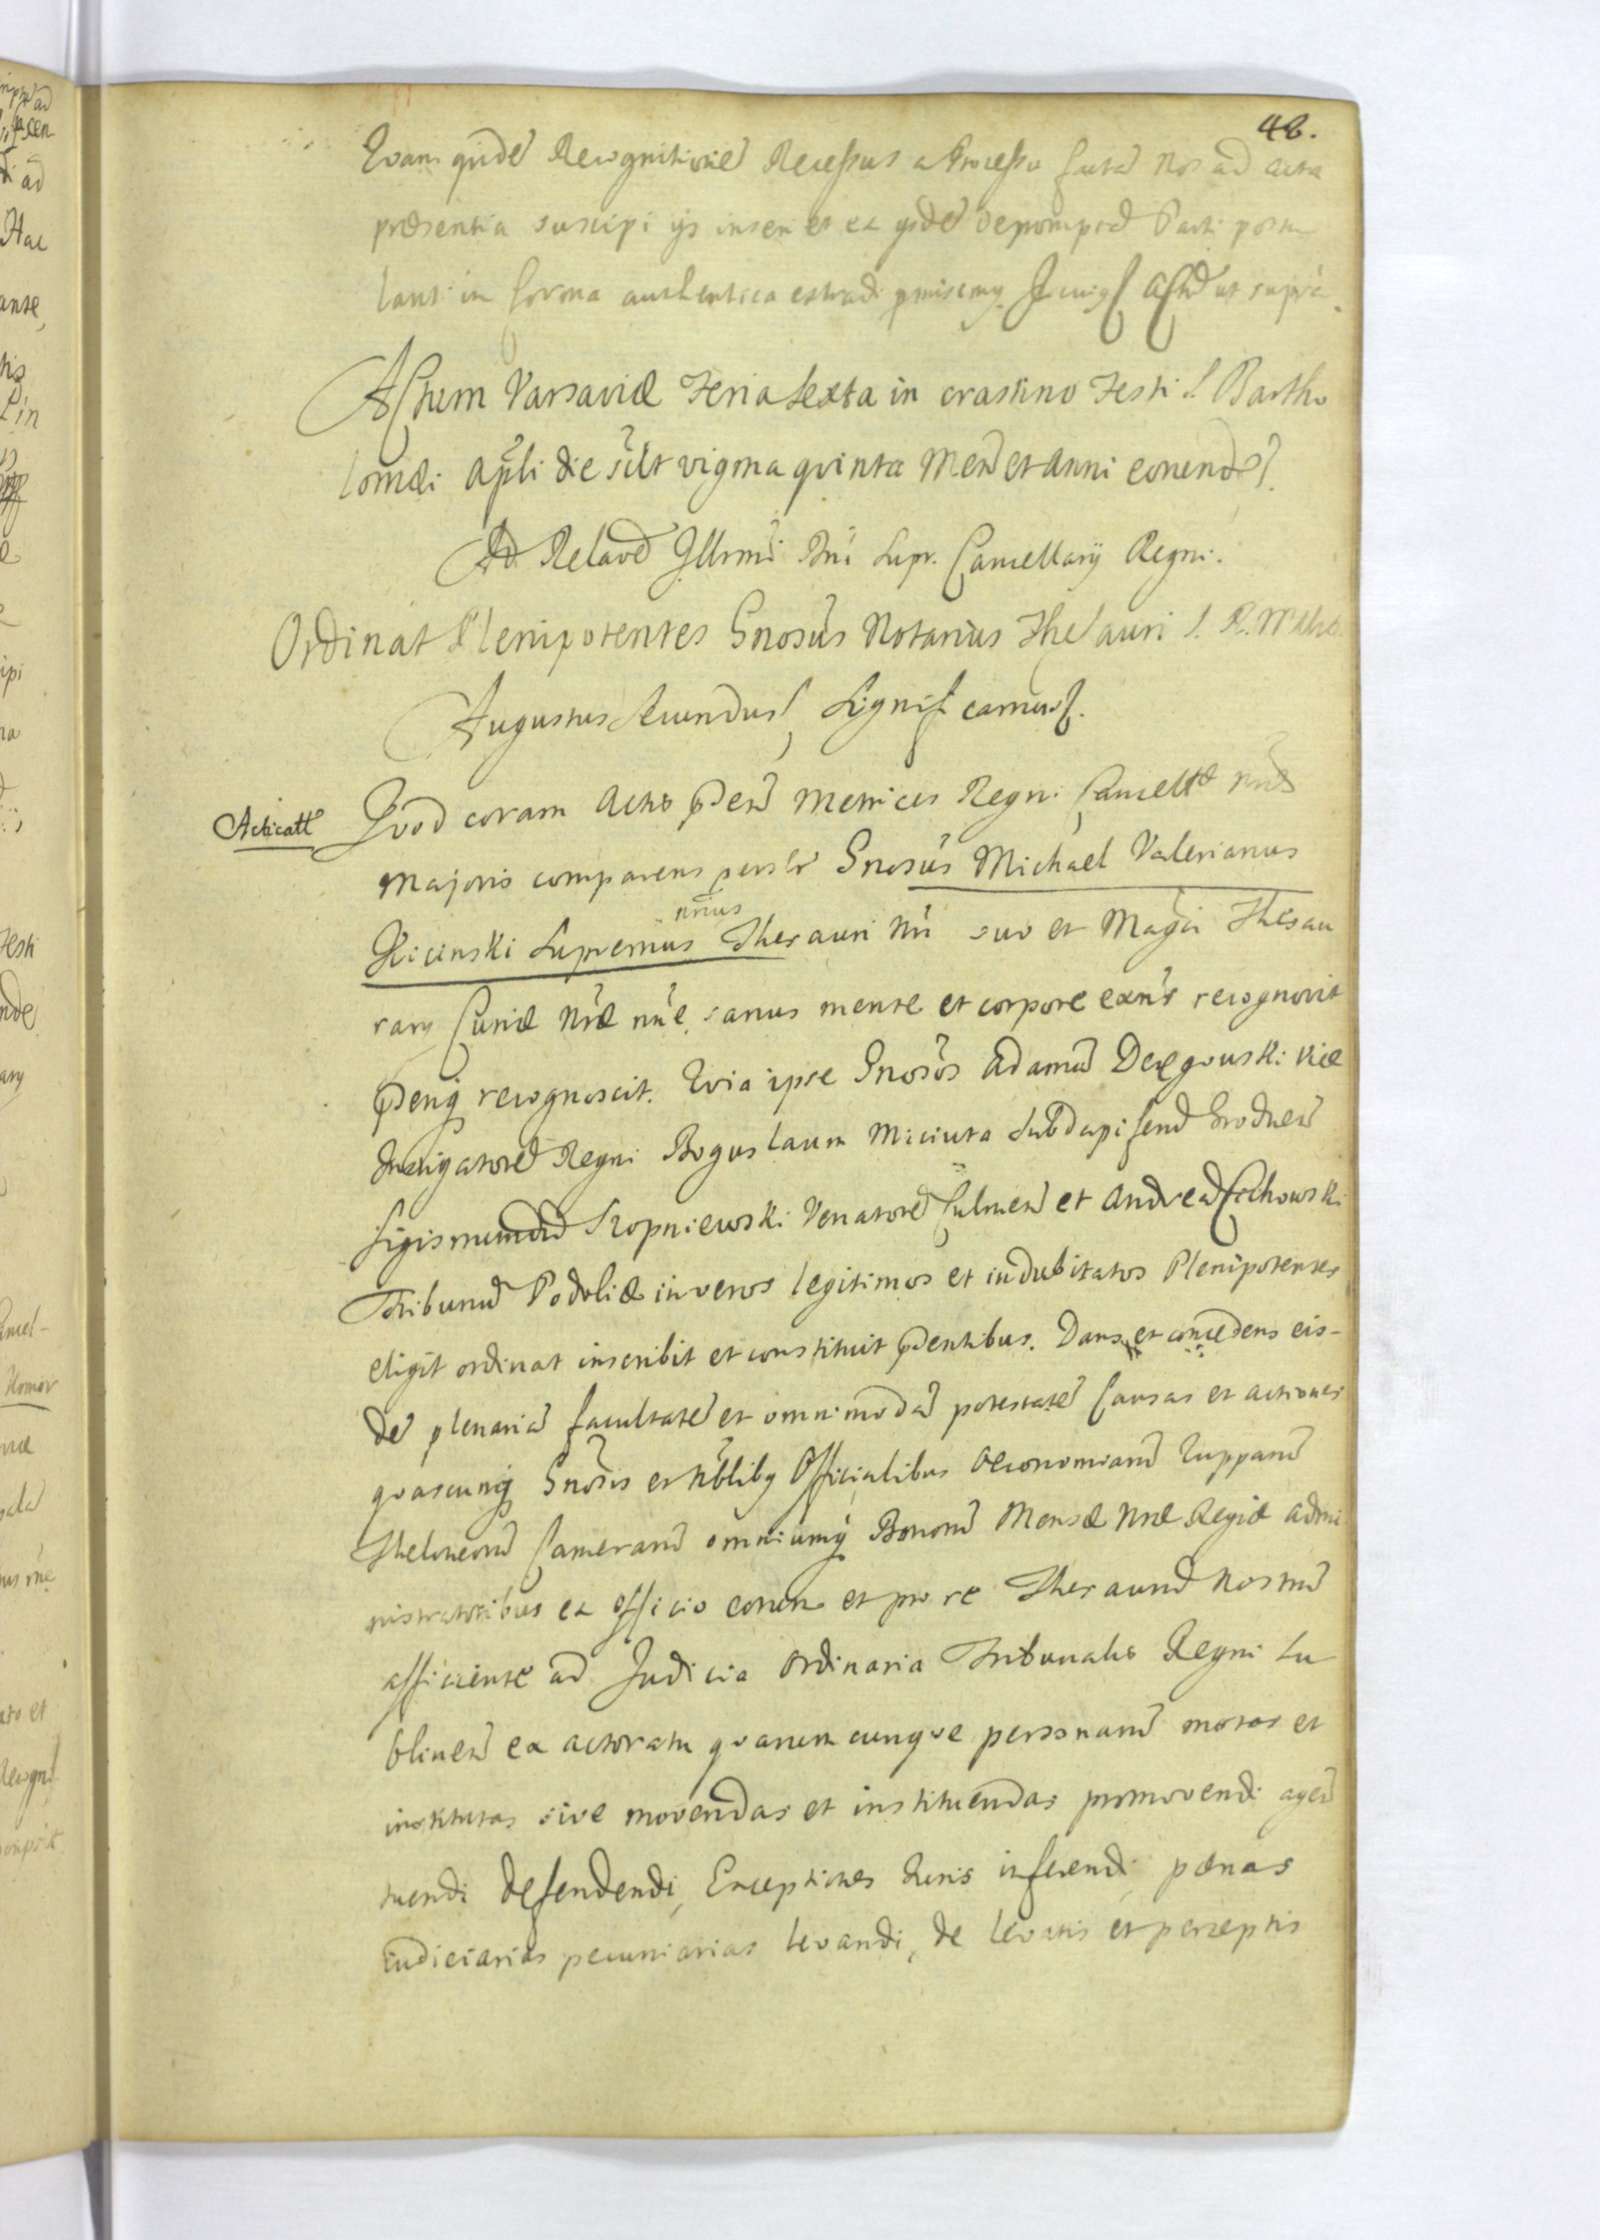 42.
Quam quidẽ Recognitionẽ Recessus a Processu factã Nos ad acta
præsentia suscipi ijs inseri et ex ijsdẽ depomptã Parti postu
lanti in forma authentica extradi pmisimq; In cuiqs Actũ ut supra.
Actum Varsaviæ Feria Sexta in crastino Festi S. Bartho
lomæi Apli die scilt vigma quinta Mens et Anni eorundẽ.
Ad Relaoẽ Illrmi Dni Supr. Cancellarij Regni.
Ordinat Plenipotentes Gnosus Notarius Thesauri S. R. Mttis
Augustus Secundus, Significamus.
Acticatt
Quod coram Actis pñ Metrices Regni Cancellæ nræ
Majoris comparens persłr Gnosus Michael Valerianus
Kicinski Supremus nrius Thesauri nri suo et Magci Thesau
rarij Curiæ Nræ nñe, sanus mente et corpore exñs recognovit
pñq; recognoscit. Quia ipse Gnosos Adamũ Deręgowski Vice
Instigatorẽ Regni Boguslaum Miciuta Subdapiferũ Grodneñ
Sigismundũ Stopniewski Venatorẽ Culmeñ et Andreã Cichowski
Tribunũ Podoliæ in veros legitimos et indubitatos Plenipotentes
eligit ordinat inscribit et constituit pñtibus. Dans et concedens eis-
dẽ plenariã facultatẽ et omnimodã potestatẽ Causas et actiones
quascunq; Gnosis et Nblibq Officialibus Œconomiarũ Zupparũ
Theloneorũ Camerarũ omniumq; Bonorũ Mensæ Nræ Regiæ admi
nistratoribus ex officio eorum et pro re Thesaurũ Nostrũ
afficiente ad Judicia Ordinaria Tribunalis Regni Lu
blineñ ex actoratu quarumcunque personarũ motas et
institutas sive movendas et instituendas promovendi ageñ
tuendi defendendi, Exceptiones Iuris inferendi pænas
iudiciarias pecuniarias levandi, de levatis et perceptis